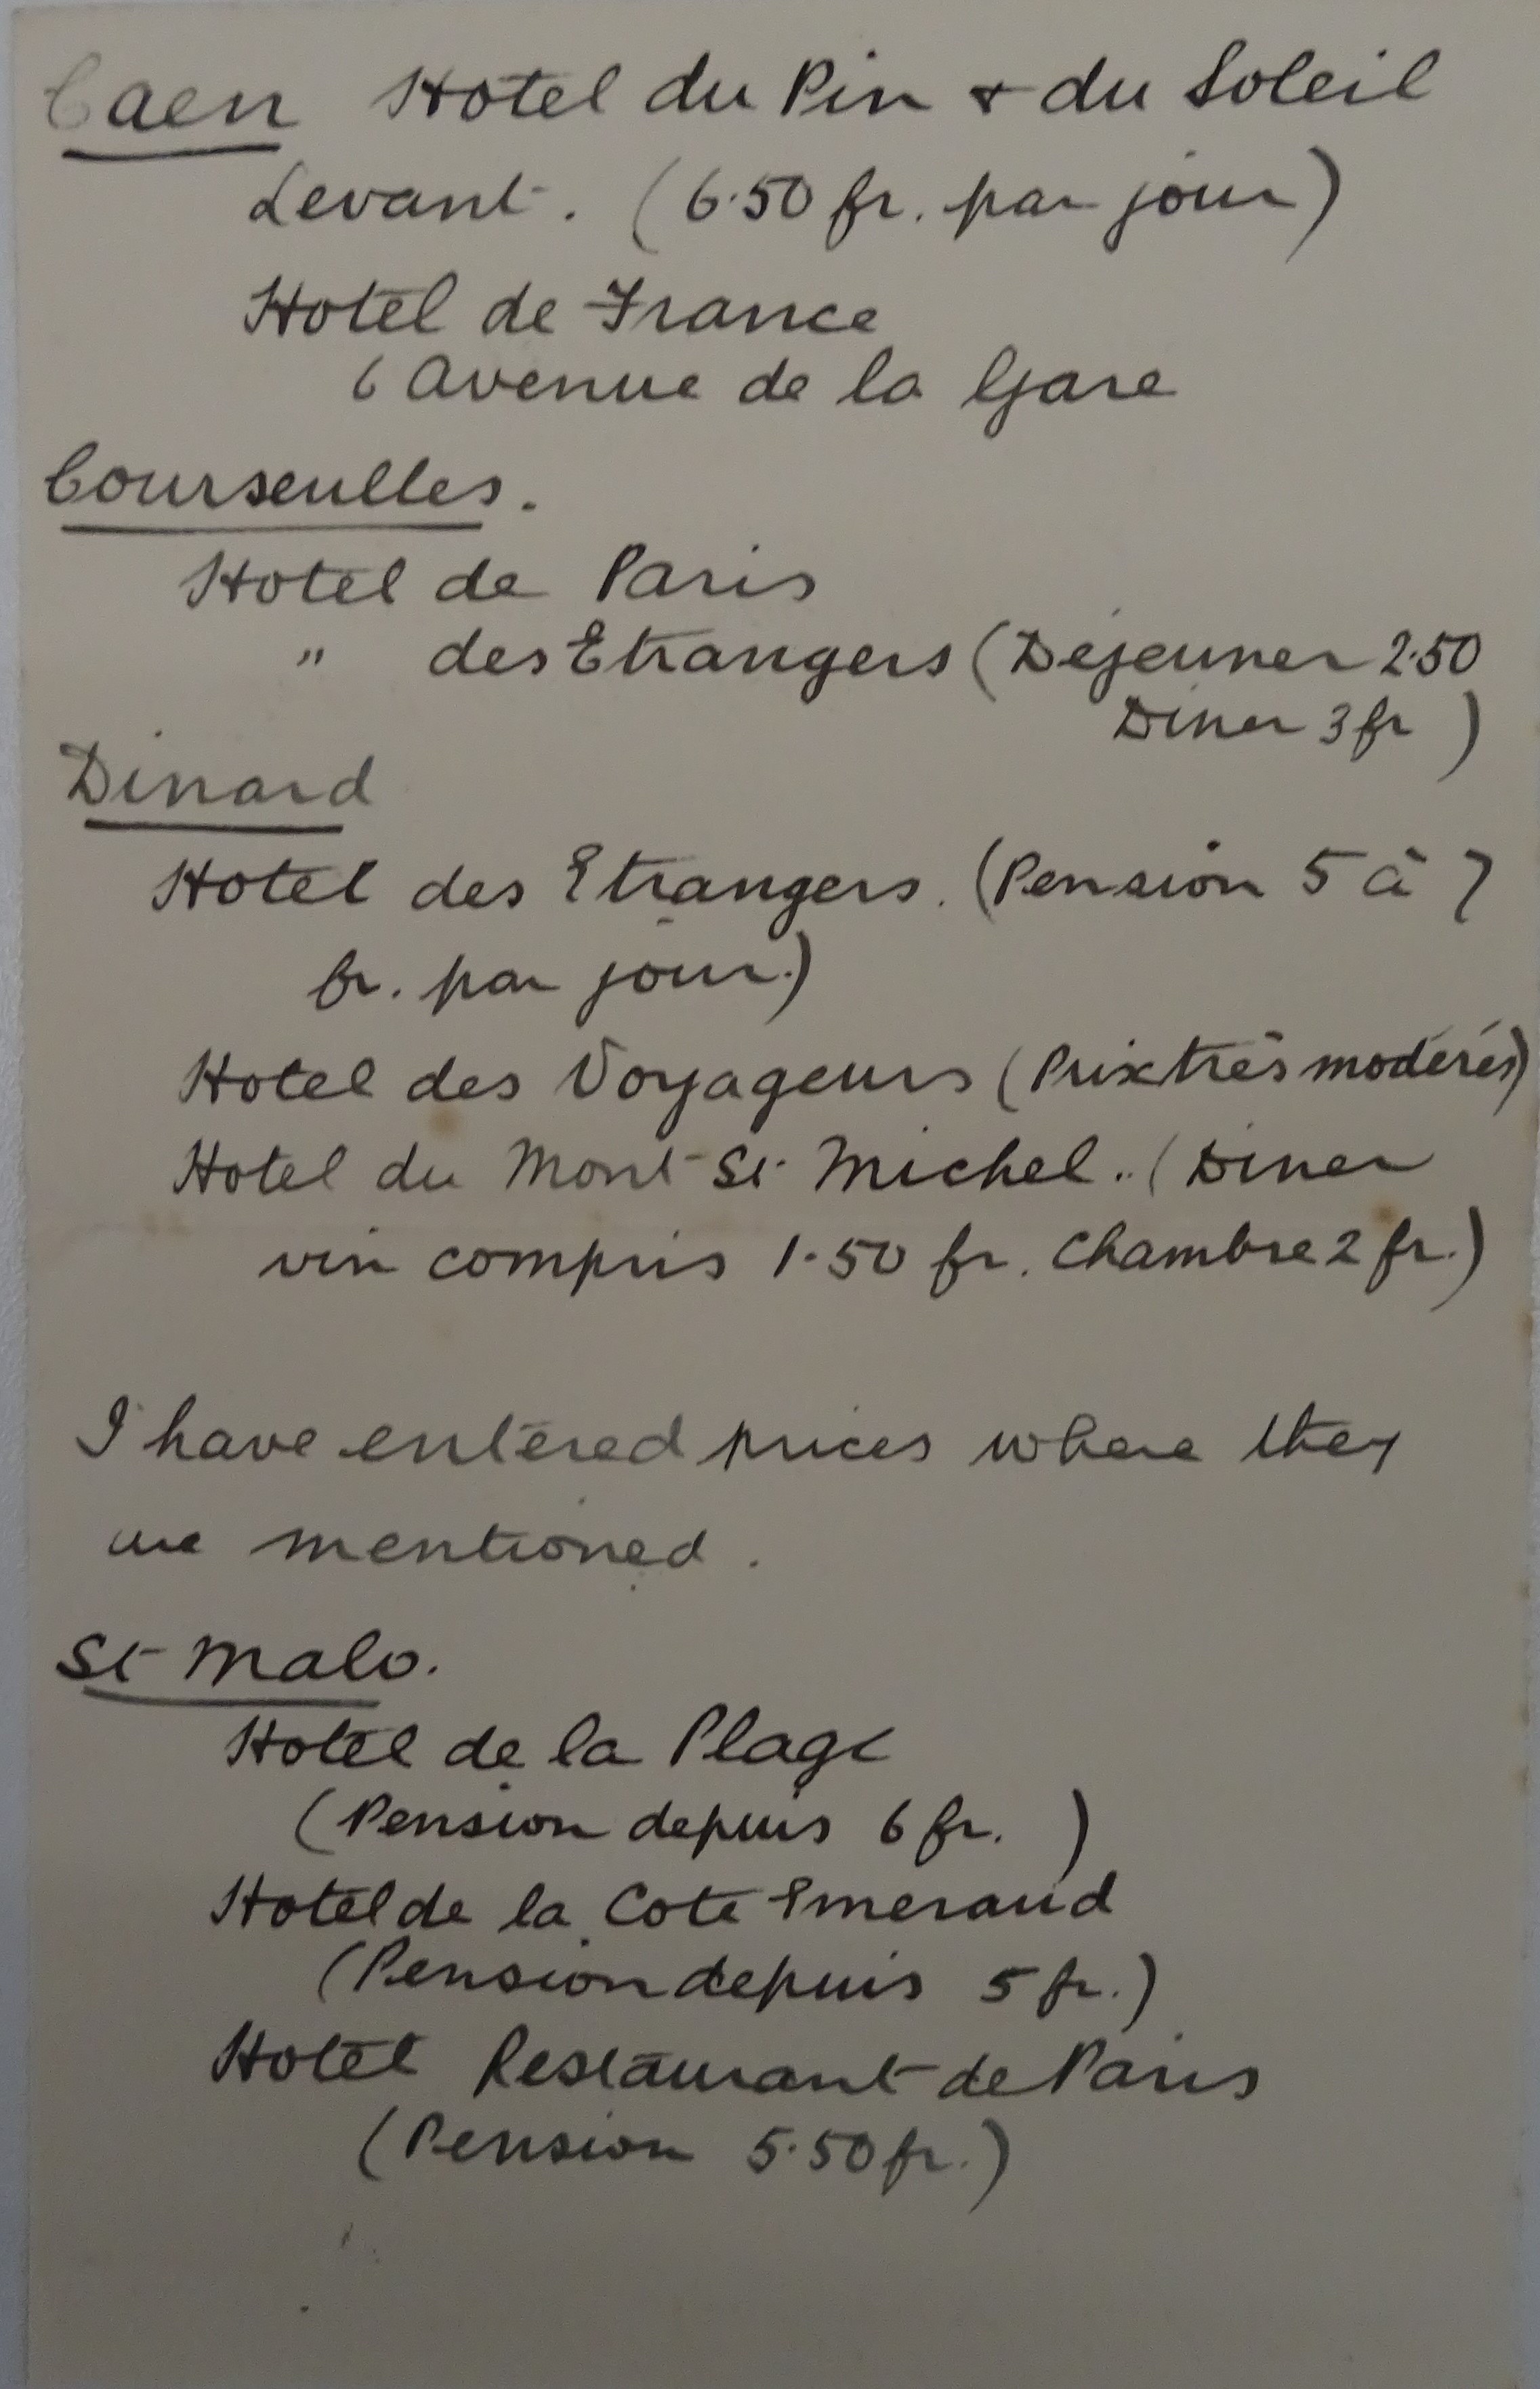 Caen Hotel du Pin & du Soleil
Levant. (6.50 fr. par jour)
Hotel de France
6 Avenue de la Gare
Courseulles.
Hotel de Paris
" des Etrangers (Déjeuner 2.50
Diner 3 fr)
Dinard
Hotel des Etrangers. (Pension 5 à 7
fr. par jour.)
Hotel des Voyageurs (Prix très modérés)
Hotel du Mont St Michel.. (Diner
vin compris 1.50 fr. Chambre 2 fr.)
I have entered prices where they
are mentioned.
St Malo.
Hotel de la Plage
(Pension depuis 6 fr.)
Hotel de la Cote Emeraud
(Pension depuis 5 fr.)
Hotel Restaurant de Paris
(Pension 5.50 fr.)